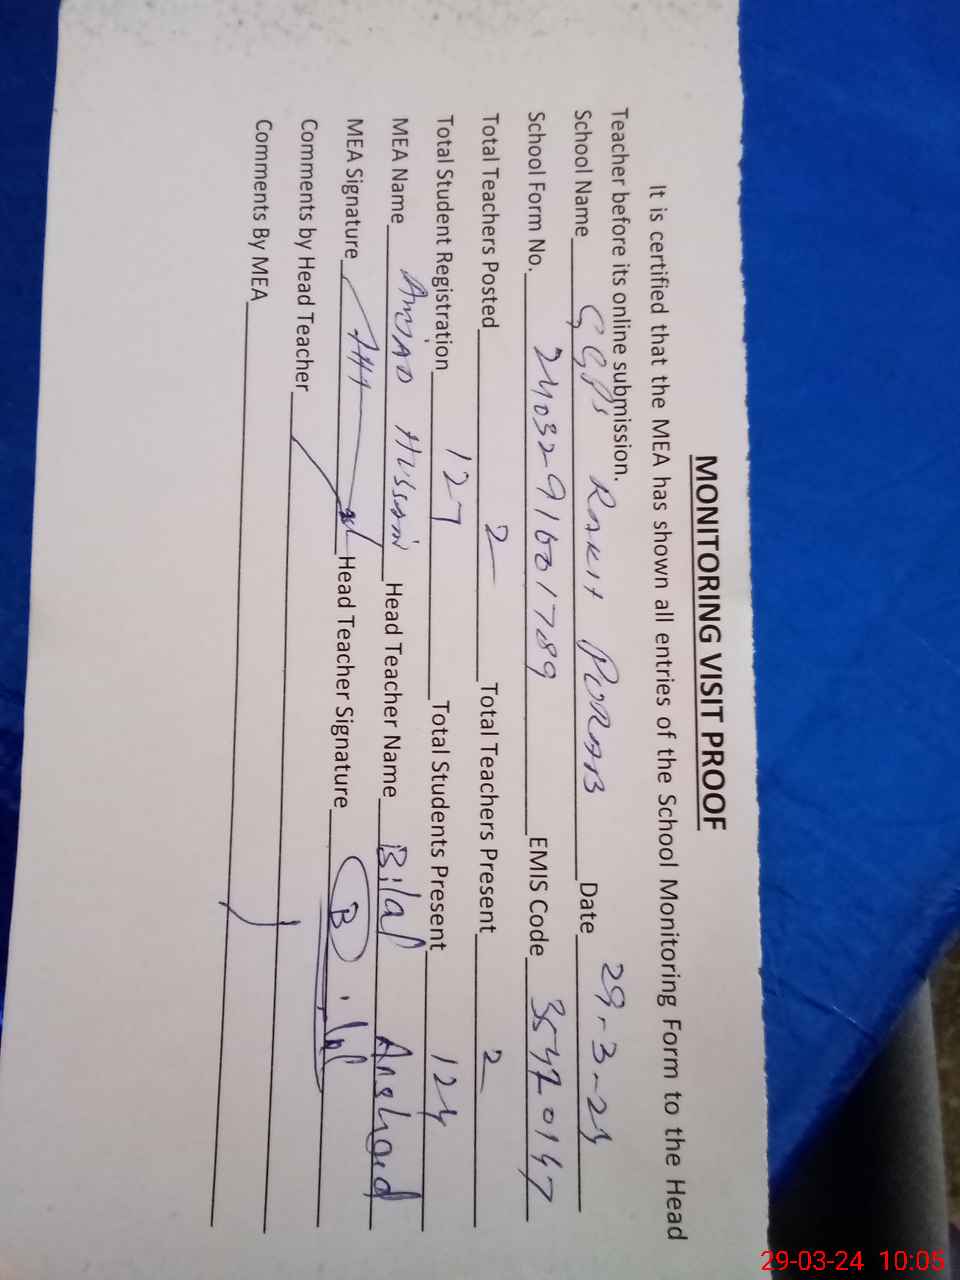 MONITORING VISIT PROOF
It is certified that the MEA has shown all entries of the School Monitoring Form to the Head
Teacher before its online submission.
School Name GGPS RAKH PORAB Date 29-3-24
School Form No. 24032916001789 EMIS Code 35420147
Total Teachers Posted 2 Total Teachers Present 2
Total Student Registration 127 Total Students Present 124
MEA Name AMJAD HUSSAIN Head Teacher Name Bilal Arshad
MEA Signature Head Teacher Signature Bilal
Comments by Head Teacher
Comments By MEA
29-03-24 10:05